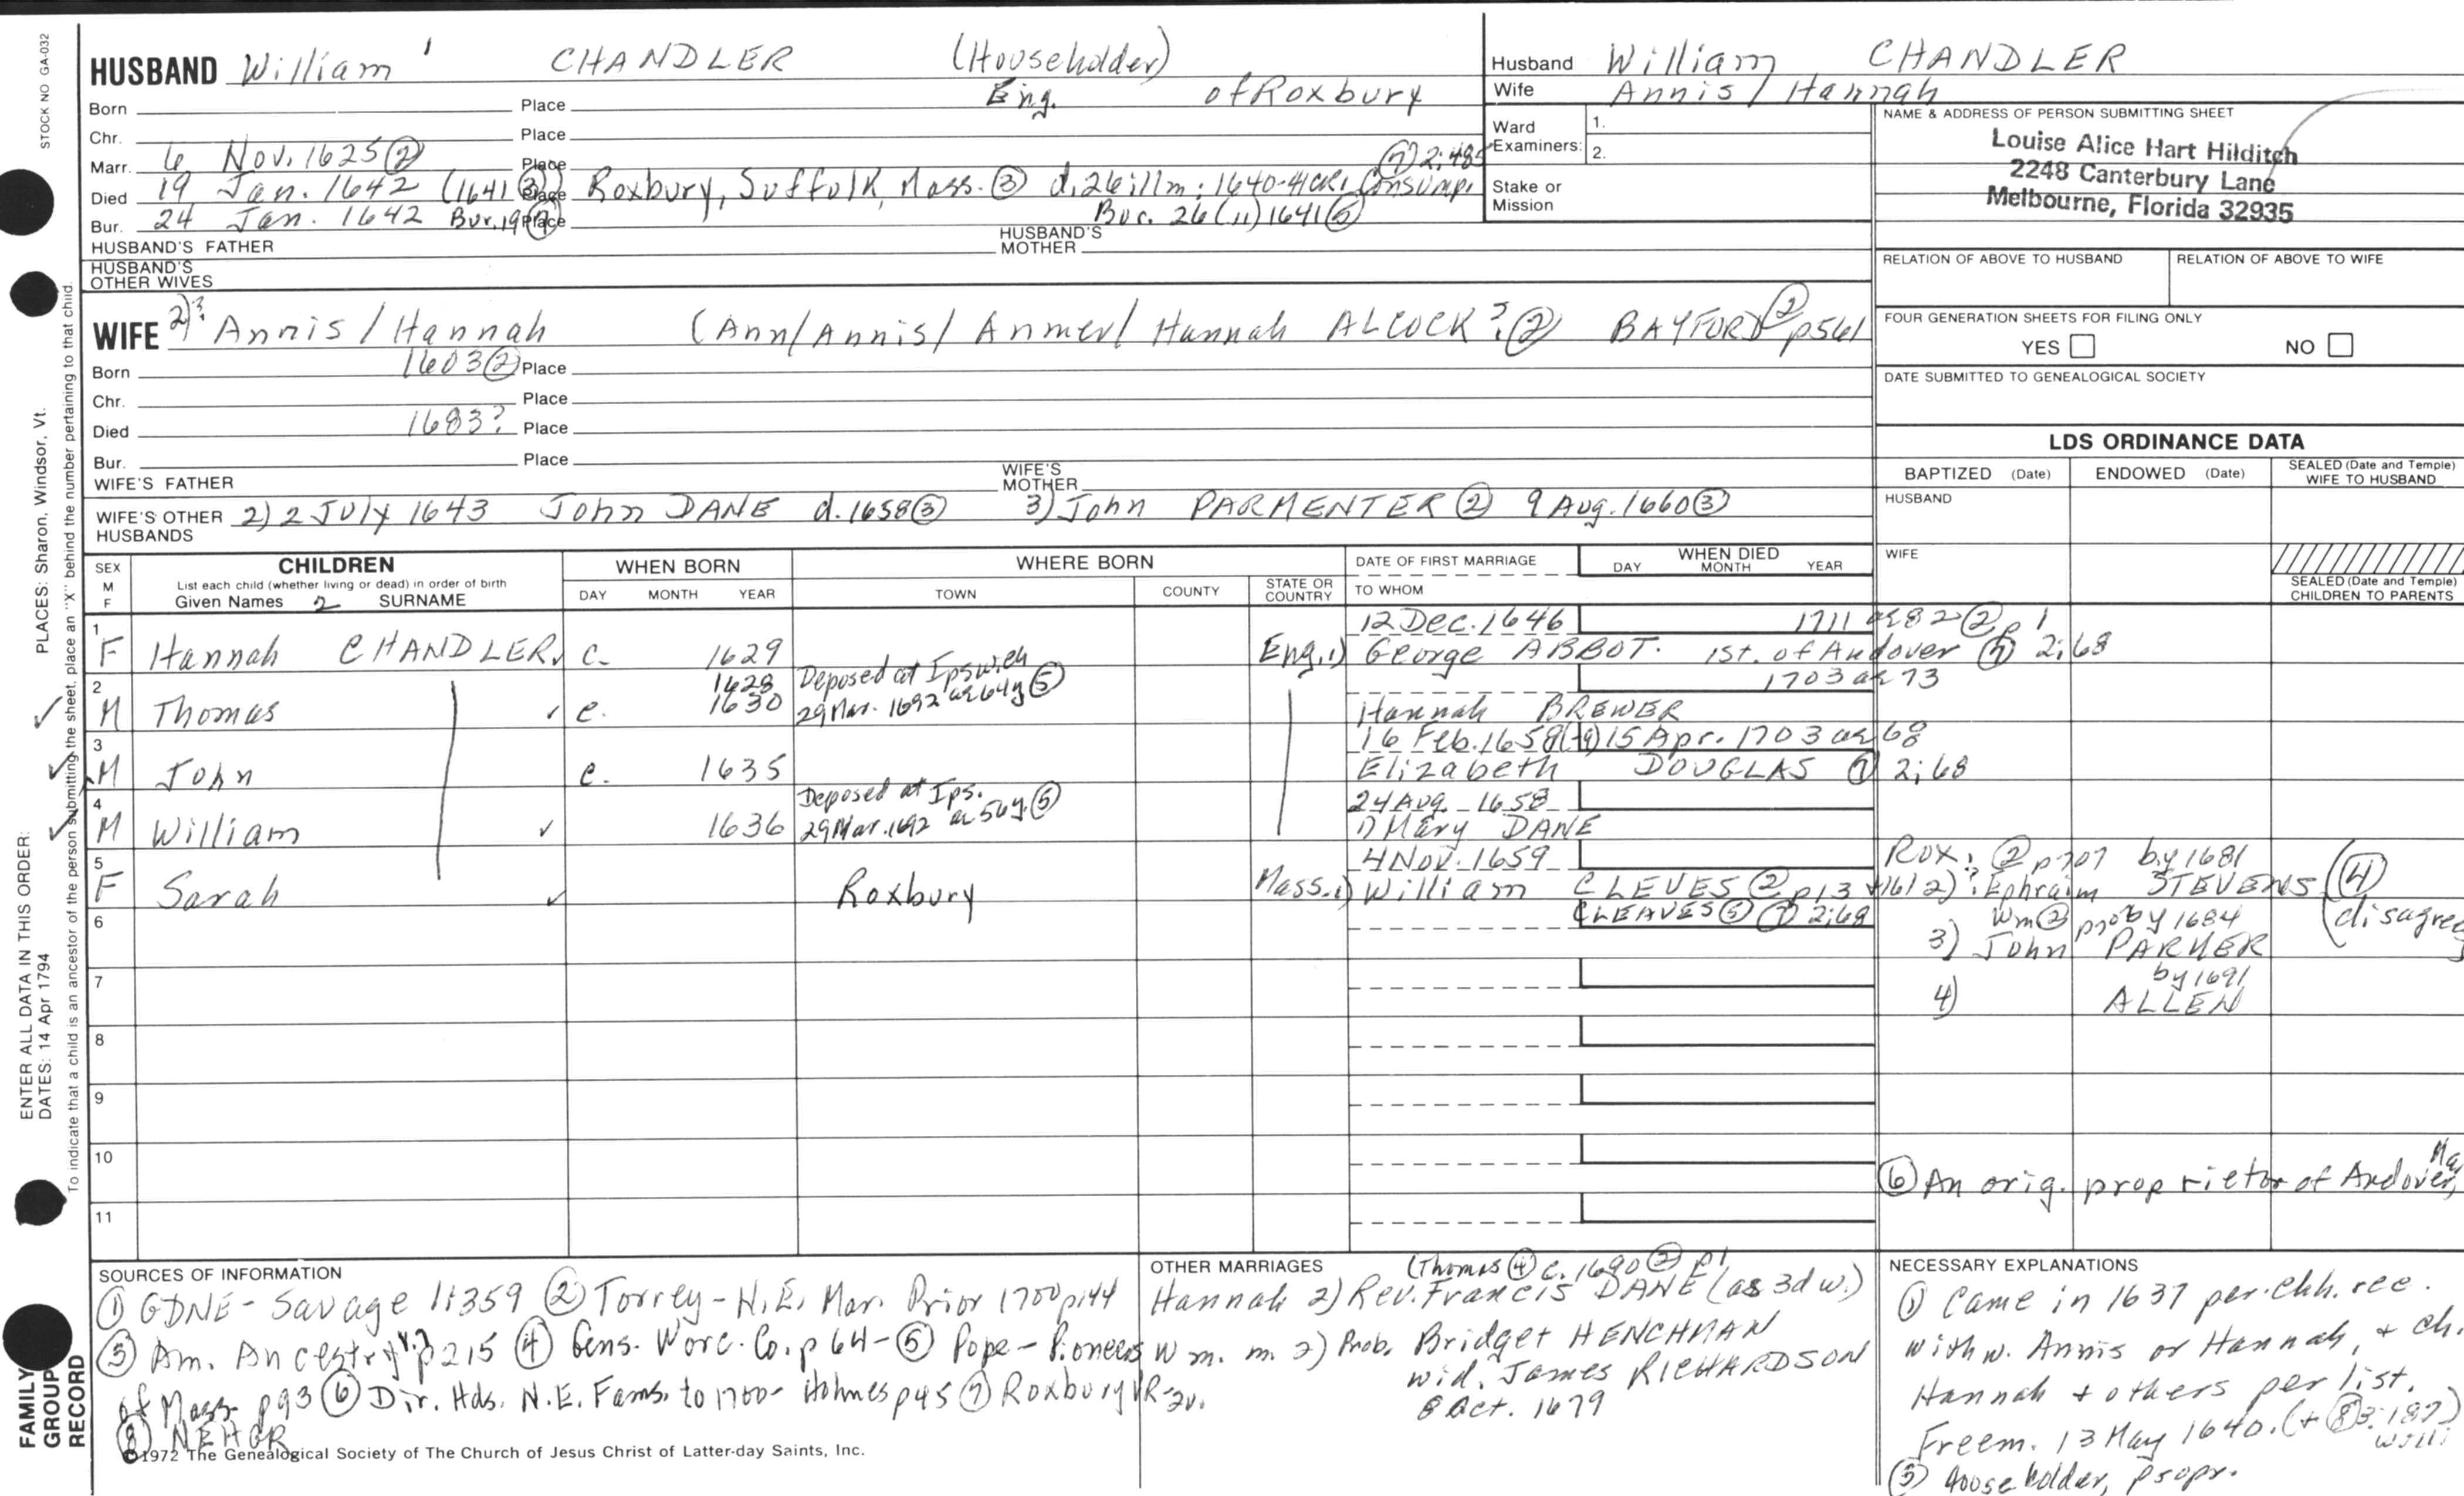 HUSBAND William 1 CHANDLER (Householder)
Eng. of Roxbury
Born Place
Chr. Place
Marr. 6 Nov. 1625 ② Place
⑦ 2:485
Died 19 Jan. 1642 (1641 ③) Place Roxbury, Suffolk, Mass. ③ d. 26 11m: 1640-41 Consump.
Bur. 24 Jan. 1642 Bur. 19 ⑦ Place Bur. 26 (11) 1641 ⑤
HUSBAND'S FATHER HUSBAND'S MOTHER
HUSBAND'S OTHER WIVES
WIFE 2)? Annis / Hannah (Ann/Annis/ Anmer/ Hannah ALCOCK? ② BAYFORD ② p561
Born 1603 ② Place
Chr. Place
Died 1683? Place
Bur. Place
WIFE'S FATHER WIFE'S MOTHER
WIFE'S OTHER HUSBANDS 2) 2 July 1643 John DANE d. 1658 ③ 3) John PARMENTER ② 9 Aug. 1660 ③
Husband William CHANDLER
Wife Annis / Hannah
Ward 1.
Examiners: 2.
Stake or Mission
NAME & ADDRESS OF PERSON SUBMITTING SHEET
Louise Alice Hart Hilditch
2248 Canterbury Lane
Melbourne, Florida 32935
RELATION OF ABOVE TO HUSBAND RELATION OF ABOVE TO WIFE
FOUR GENERATION SHEETS FOR FILING ONLY
YES NO
DATE SUBMITTED TO GENEALOGICAL SOCIETY
LDS ORDINANCE DATA
BAPTIZED (Date) ENDOWED (Date) SEALED (Date and Temple) WIFE TO HUSBAND
HUSBAND
WIFE
SEALED (Date and Temple) CHILDREN TO PARENTS
SEX M F CHILDREN WHEN BORN WHERE BORN DATE OF FIRST MARRIAGE WHEN DIED
List each child (whether living or dead) in order of birth
Given Names 2 SURNAME DAY MONTH YEAR TOWN COUNTY STATE OR COUNTRY TO WHOM DAY MONTH YEAR
12 Dec. 1646 1711 ae 82 ② p 1
1 F Hannah CHANDLER c. 1629 Eng. 1) George ABBOT. 1st. of Andover ⑦ 2:68
1628 Deposed at Ipswich 1703 ae 73
2 M Thomas c. 1630 29 Mar. 1692 ae 64y ⑤ Hannah BREWER
16 Feb. 1658 15 Apr. 1703 ae 68
3 M John c. 1635 Elizabeth DOUGLAS ⑦ 2:68
Deposed at Ips. 24 Aug. 1658
4 M William 1636 29 Mar. 1692 ae 56y. ⑤ 1) Mary DANE
4 Nov. 1659 Rox. ② p707 by 1681
5 F Sarah Roxbury Mass. 1) William CLEVES ② 2)? Ephraim STEVENS ④
CLEAVES ⑤ ⑦ 2:68 Wm ② by 1684 (disagree
6 3) John PARKER
7 by 1691
4) ALLEN
8
9
10
⑥ An orig. proprietor of Andover, Ma
11
SOURCES OF INFORMATION
① GDNE - Savage 1:359 ② Torrey - N.E. Mar. Prior 1700 p144
③ Am. Ancestry p215 ④ Gens. Worc. Co. p 64 - ⑤ Pope - Pioneers
of Mass p93 ⑥ Dir. Hds. N.E. Fams. to 1700 - Holmes p45 ⑦ Roxbury VR-2v.
⑧ NEHGR
OTHER MARRIAGES (Thomas ④ c. 1690 ② p1
Hannah 2) Rev. Francis DANE (as 3d w.)
Wm. m. 2) Prob. Bridget HENCHMAN
wid. James RICHARDSON
8 Oct. 1679
NECESSARY EXPLANATIONS
① Came in 1637 per. chh. rec.
with w. Annis or Hannah, + ch.
Hannah + others per list.
Freem. 13 May 1640. (+ ⑧ 3:187)
⑤ householder, propr.
©1972 The Genealogical Society of The Church of Jesus Christ of Latter-day Saints, Inc.
STOCK NO GA-032
PLACES: Sharon, Windsor, Vt.
ENTER ALL DATA IN THIS ORDER:
DATES: 14 Apr 1794
To indicate that a child is an ancestor of the person submitting the sheet, place an "X" behind the number pertaining to that child.
FAMILY GROUP RECORD